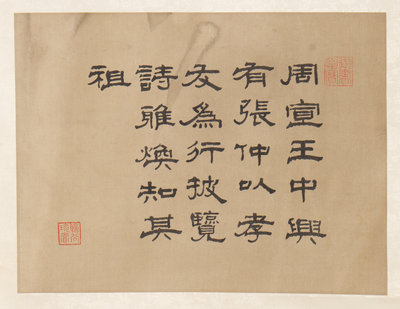 周宣王中興
有張仲以孝
友為行披覽
詩雅煥知其
祖